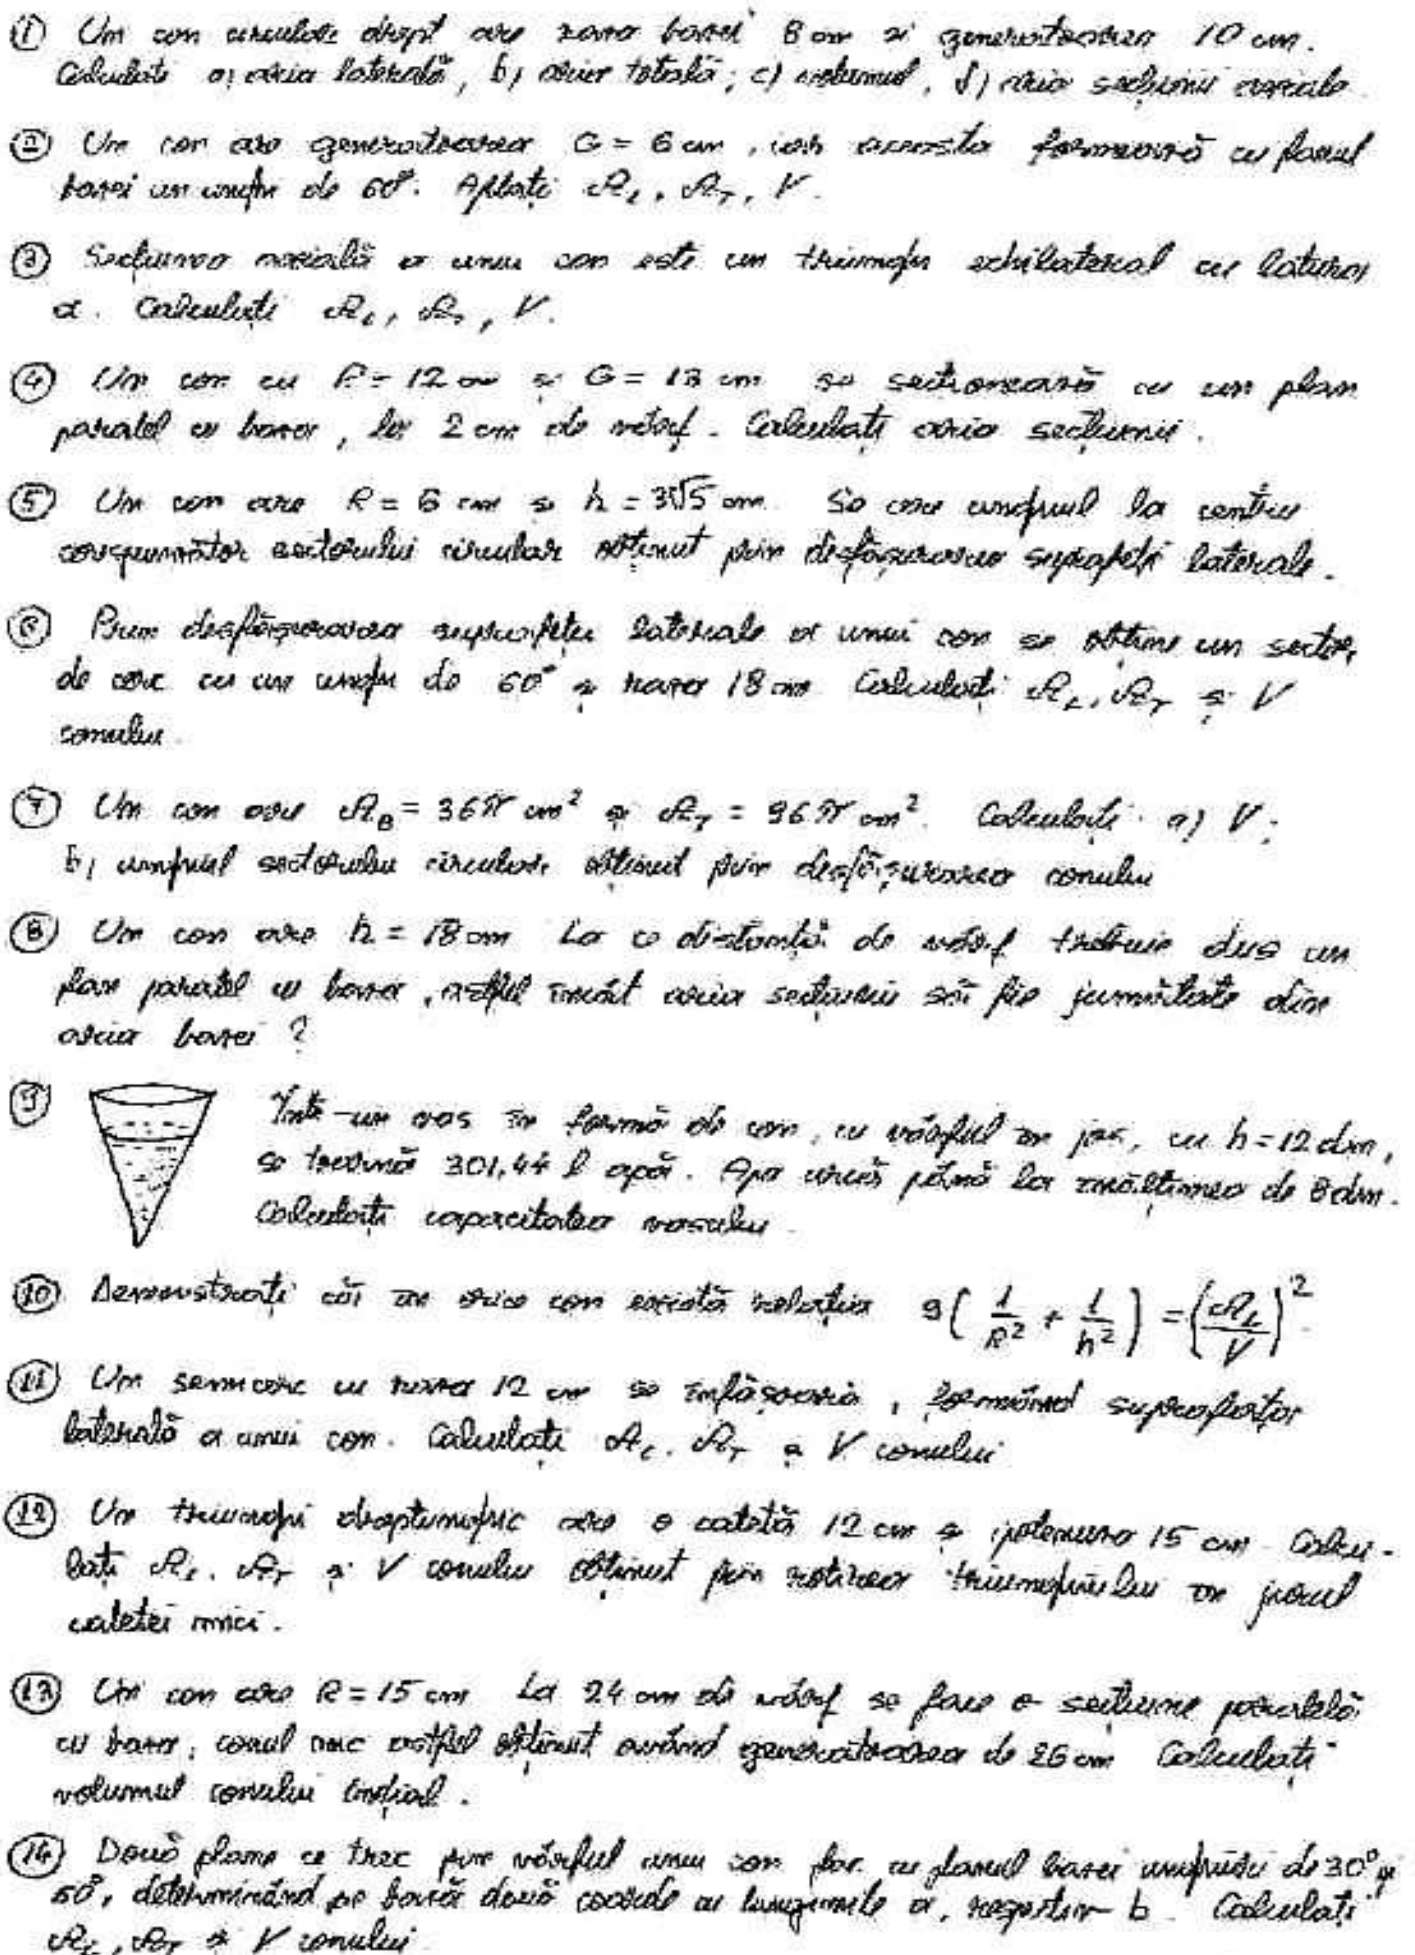 ① Un con circular drept are raza bazei 8 cm și generatoarea 10 cm.
Calculați a) aria laterală, b) aria totală; c) volumul, d) aria secțiunii axiale.
② Un con are generatoarea G = 6 cm, iar aceasta formează cu planul
bazei un unghi de 60°. Aflați 𝒜L, 𝒜T, V.
③ Secțiunea axială a unui con este un triunghi echilateral cu latura
a. Calculați 𝒜L, 𝒜T, V.
④ Un con cu R = 12 cm și G = 13 cm se secționează cu un plan
paralel cu baza, la 2 cm de vârf. Calculați aria secțiunii.
⑤ Un con are R = 6 cm și h = 3√5 cm. Se cere unghiul la centru
corespunzător sectorului circular obținut prin desfășurarea suprafeței laterale.
⑥ Prin desfășurarea suprafeței laterale a unui con se obține un sector
de cerc cu un unghi de 60° și raza 18 cm. Calculați 𝒜L, 𝒜T și V
conului.
⑦ Un con are 𝒜B = 36π cm² și 𝒜T = 96π cm². Calculați: a) V;
b) unghiul sectorului circular obținut prin desfășurarea conului
⑧ Un con are h = 18 cm La ce distanță de vârf trebuie dus un
plan paralel cu baza, astfel încât aria secțiunii să fie jumătate din
aria bazei ?
⑨ Într-un vas în formă de con, cu vârful în jos, cu h = 12 dm,
se toarnă 301,44 l apă. Apa urcă până la înălțimea de 8 dm.
Calculați capacitatea vasului.
⑩ Demonstrați că în orice con există relația 9(1/R² + 1/h²) = (𝒜L/V)²
⑪ Un semicerc cu raza 12 cm se înfășoară, formând suprafața
laterală a unui con. Calculați 𝒜L, 𝒜T și V conului
⑫ Un triunghi dreptunghic are o catetă 12 cm și ipotenuza 15 cm. Calcu-
lați 𝒜L, 𝒜T și V conului obținut prin rotirea triunghiului în jurul
catetei mici.
⑬ Un con are R = 15 cm La 24 cm de vârf se face o secțiune paralelă
cu baza, conul mic astfel obținut având generatoarea de 26 cm Calculați
volumul conului inițial.
⑭ Două plane ce trec prin vârful unui con fac cu planul bazei unghiuri de 30° și
60°, determinând pe bază două coarde cu lungimile a, respectiv b. Calculați
𝒜L, 𝒜T și V conului